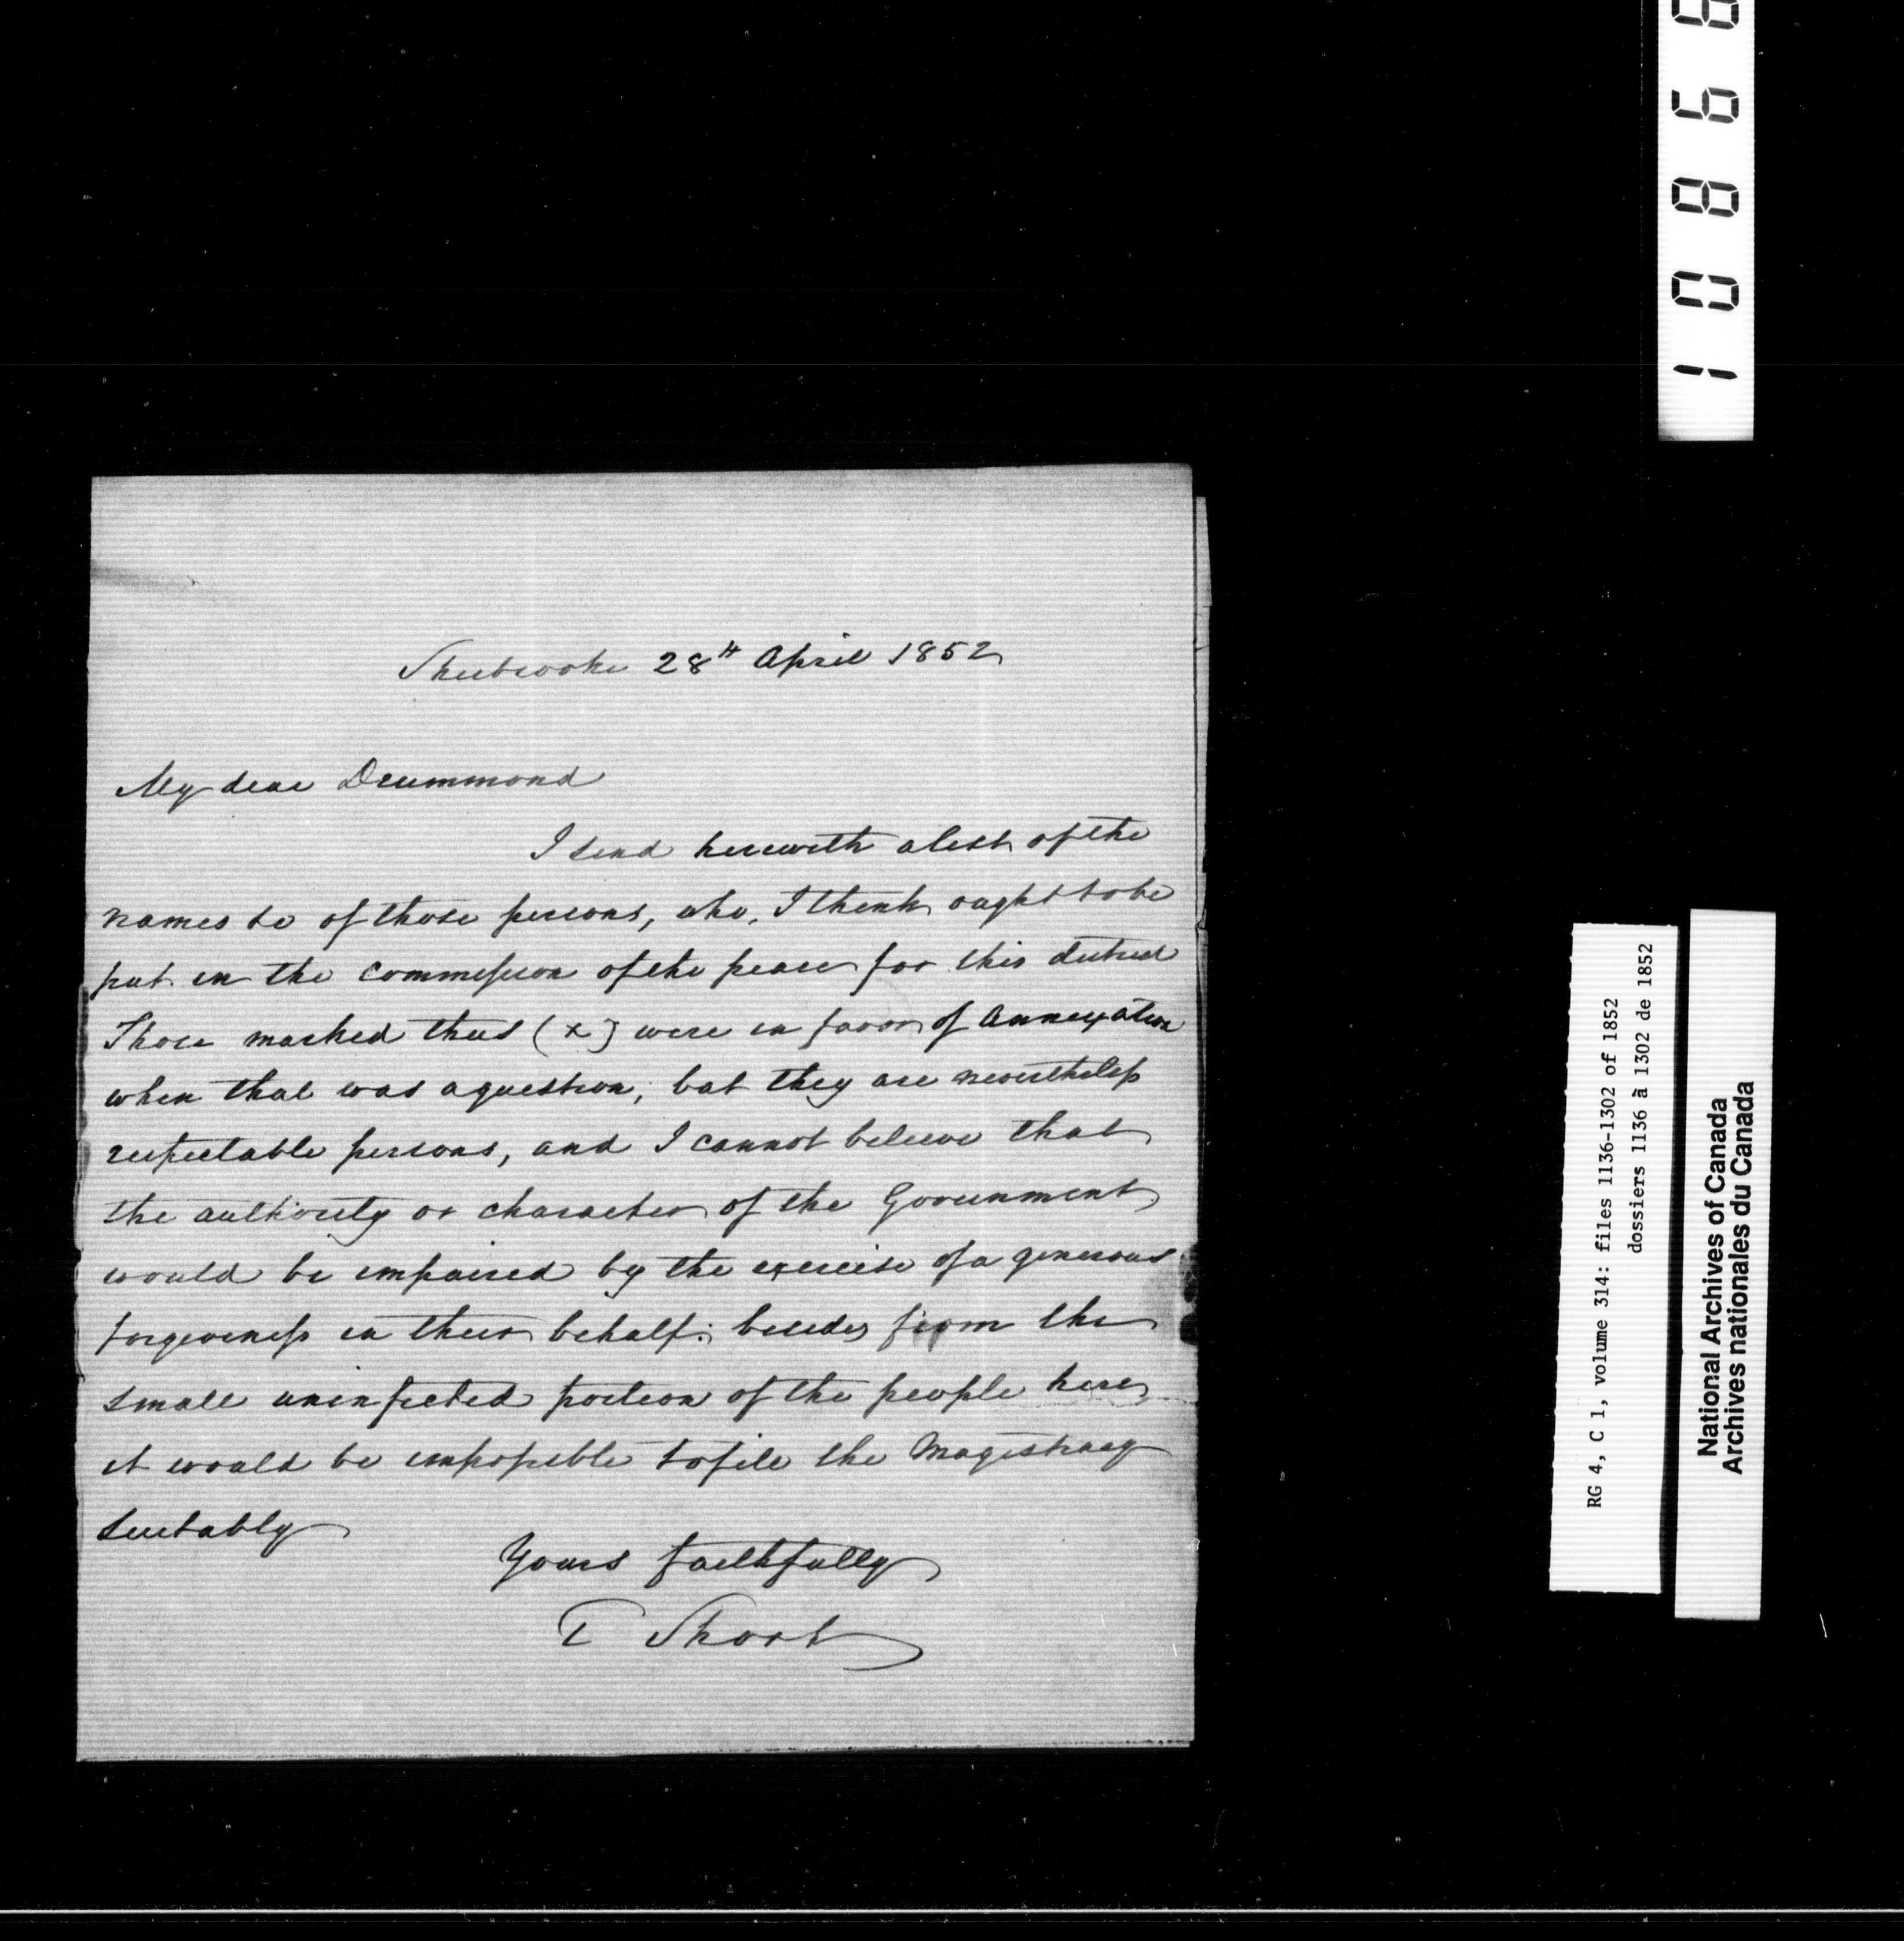 Sherbrooke 28th April 1852
My dear Drummond
I send herewith a list of the
names &c of those persons, who, I think ought to be
put in the commission of the peace for this district
Those marked thus (x) were in favor of Annexation
when that was a question; but they are nevertheless
respectable persons, and I cannot believe that
the authority or character of the Government
would be impaired by the exercise of a generous
forgiveness in their behalf; besides from the
small uninfected portion of the people here,
it would be impossible to fill the Magistracy
suitably
Yours faithfully
T Short
1 0 8 6 8
RG 4, C 1, volume 314: files 1136-1302 of 1852
dossiers 1136 à 1302 de 1852
National Archives of Canada
Archives nationales du Canada